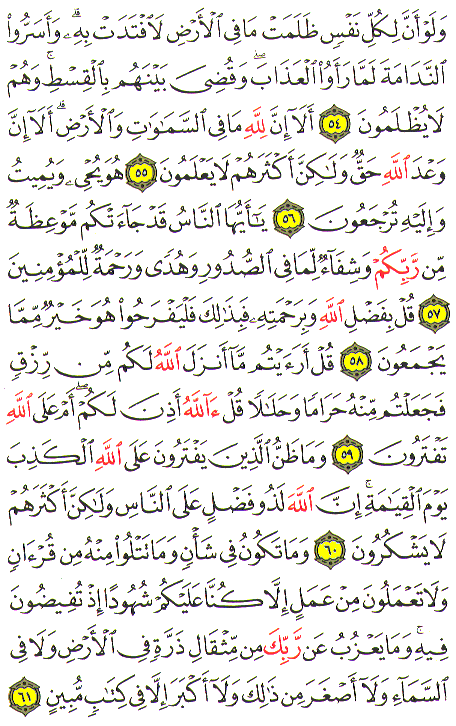 وَلَوْ أَنَّ لِكُلِّ نَفْسٍ ظَلَمَتْ مَا فِى ٱلْأَرْضِ لَٱفْتَدَتْ بِهِۦ ۗ وَأَسَرُّوا۟
ٱلنَّدَامَةَ لَمَّا رَأَوُا۟ ٱلْعَذَابَ ۖ وَقُضِىَ بَيْنَهُم بِٱلْقِسْطِ ۚ وَهُمْ
لَا يُظْلَمُونَ ٥٤ أَلَآ إِنَّ لِلَّهِ مَا فِى ٱلسَّمَٰوَٰتِ وَٱلْأَرْضِ ۗ أَلَآ إِنَّ
وَعْدَ ٱللَّهِ حَقٌّ وَلَٰكِنَّ أَكْثَرَهُمْ لَا يَعْلَمُونَ ٥٥ هُوَ يُحْىِۦ وَيُمِيتُ
وَإِلَيْهِ تُرْجَعُونَ ٥٦ يَٰٓأَيُّهَا ٱلنَّاسُ قَدْ جَآءَتْكُم مَّوْعِظَةٌ
مِّن رَّبِّكُمْ وَشِفَآءٌ لِّمَا فِى ٱلصُّدُورِ وَهُدًى وَرَحْمَةٌ لِّلْمُؤْمِنِينَ
٥٧ قُلْ بِفَضْلِ ٱللَّهِ وَبِرَحْمَتِهِۦ فَبِذَٰلِكَ فَلْيَفْرَحُوا۟ هُوَ خَيْرٌ مِّمَّا
يَجْمَعُونَ ٥٨ قُلْ أَرَءَيْتُم مَّآ أَنزَلَ ٱللَّهُ لَكُم مِّن رِّزْقٍ
فَجَعَلْتُم مِّنْهُ حَرَامًا وَحَلَٰلًا قُلْ ءَآللَّهُ أَذِنَ لَكُمْ ۖ أَمْ عَلَى ٱللَّهِ
تَفْتَرُونَ ٥٩ وَمَا ظَنُّ ٱلَّذِينَ يَفْتَرُونَ عَلَى ٱللَّهِ ٱلْكَذِبَ
يَوْمَ ٱلْقِيَٰمَةِ ۗ إِنَّ ٱللَّهَ لَذُو فَضْلٍ عَلَى ٱلنَّاسِ وَلَٰكِنَّ أَكْثَرَهُمْ
لَا يَشْكُرُونَ ٦٠ وَمَا تَكُونُ فِى شَأْنٍ وَمَا تَتْلُوا۟ مِنْهُ مِن قُرْءَانٍ
وَلَا تَعْمَلُونَ مِنْ عَمَلٍ إِلَّا كُنَّا عَلَيْكُمْ شُهُودًا إِذْ تُفِيضُونَ
فِيهِ ۚ وَمَا يَعْزُبُ عَن رَّبِّكَ مِن مِّثْقَالِ ذَرَّةٍ فِى ٱلْأَرْضِ وَلَا فِى
ٱلسَّمَآءِ وَلَآ أَصْغَرَ مِن ذَٰلِكَ وَلَآ أَكْبَرَ إِلَّا فِى كِتَٰبٍ مُّبِينٍ ٦١